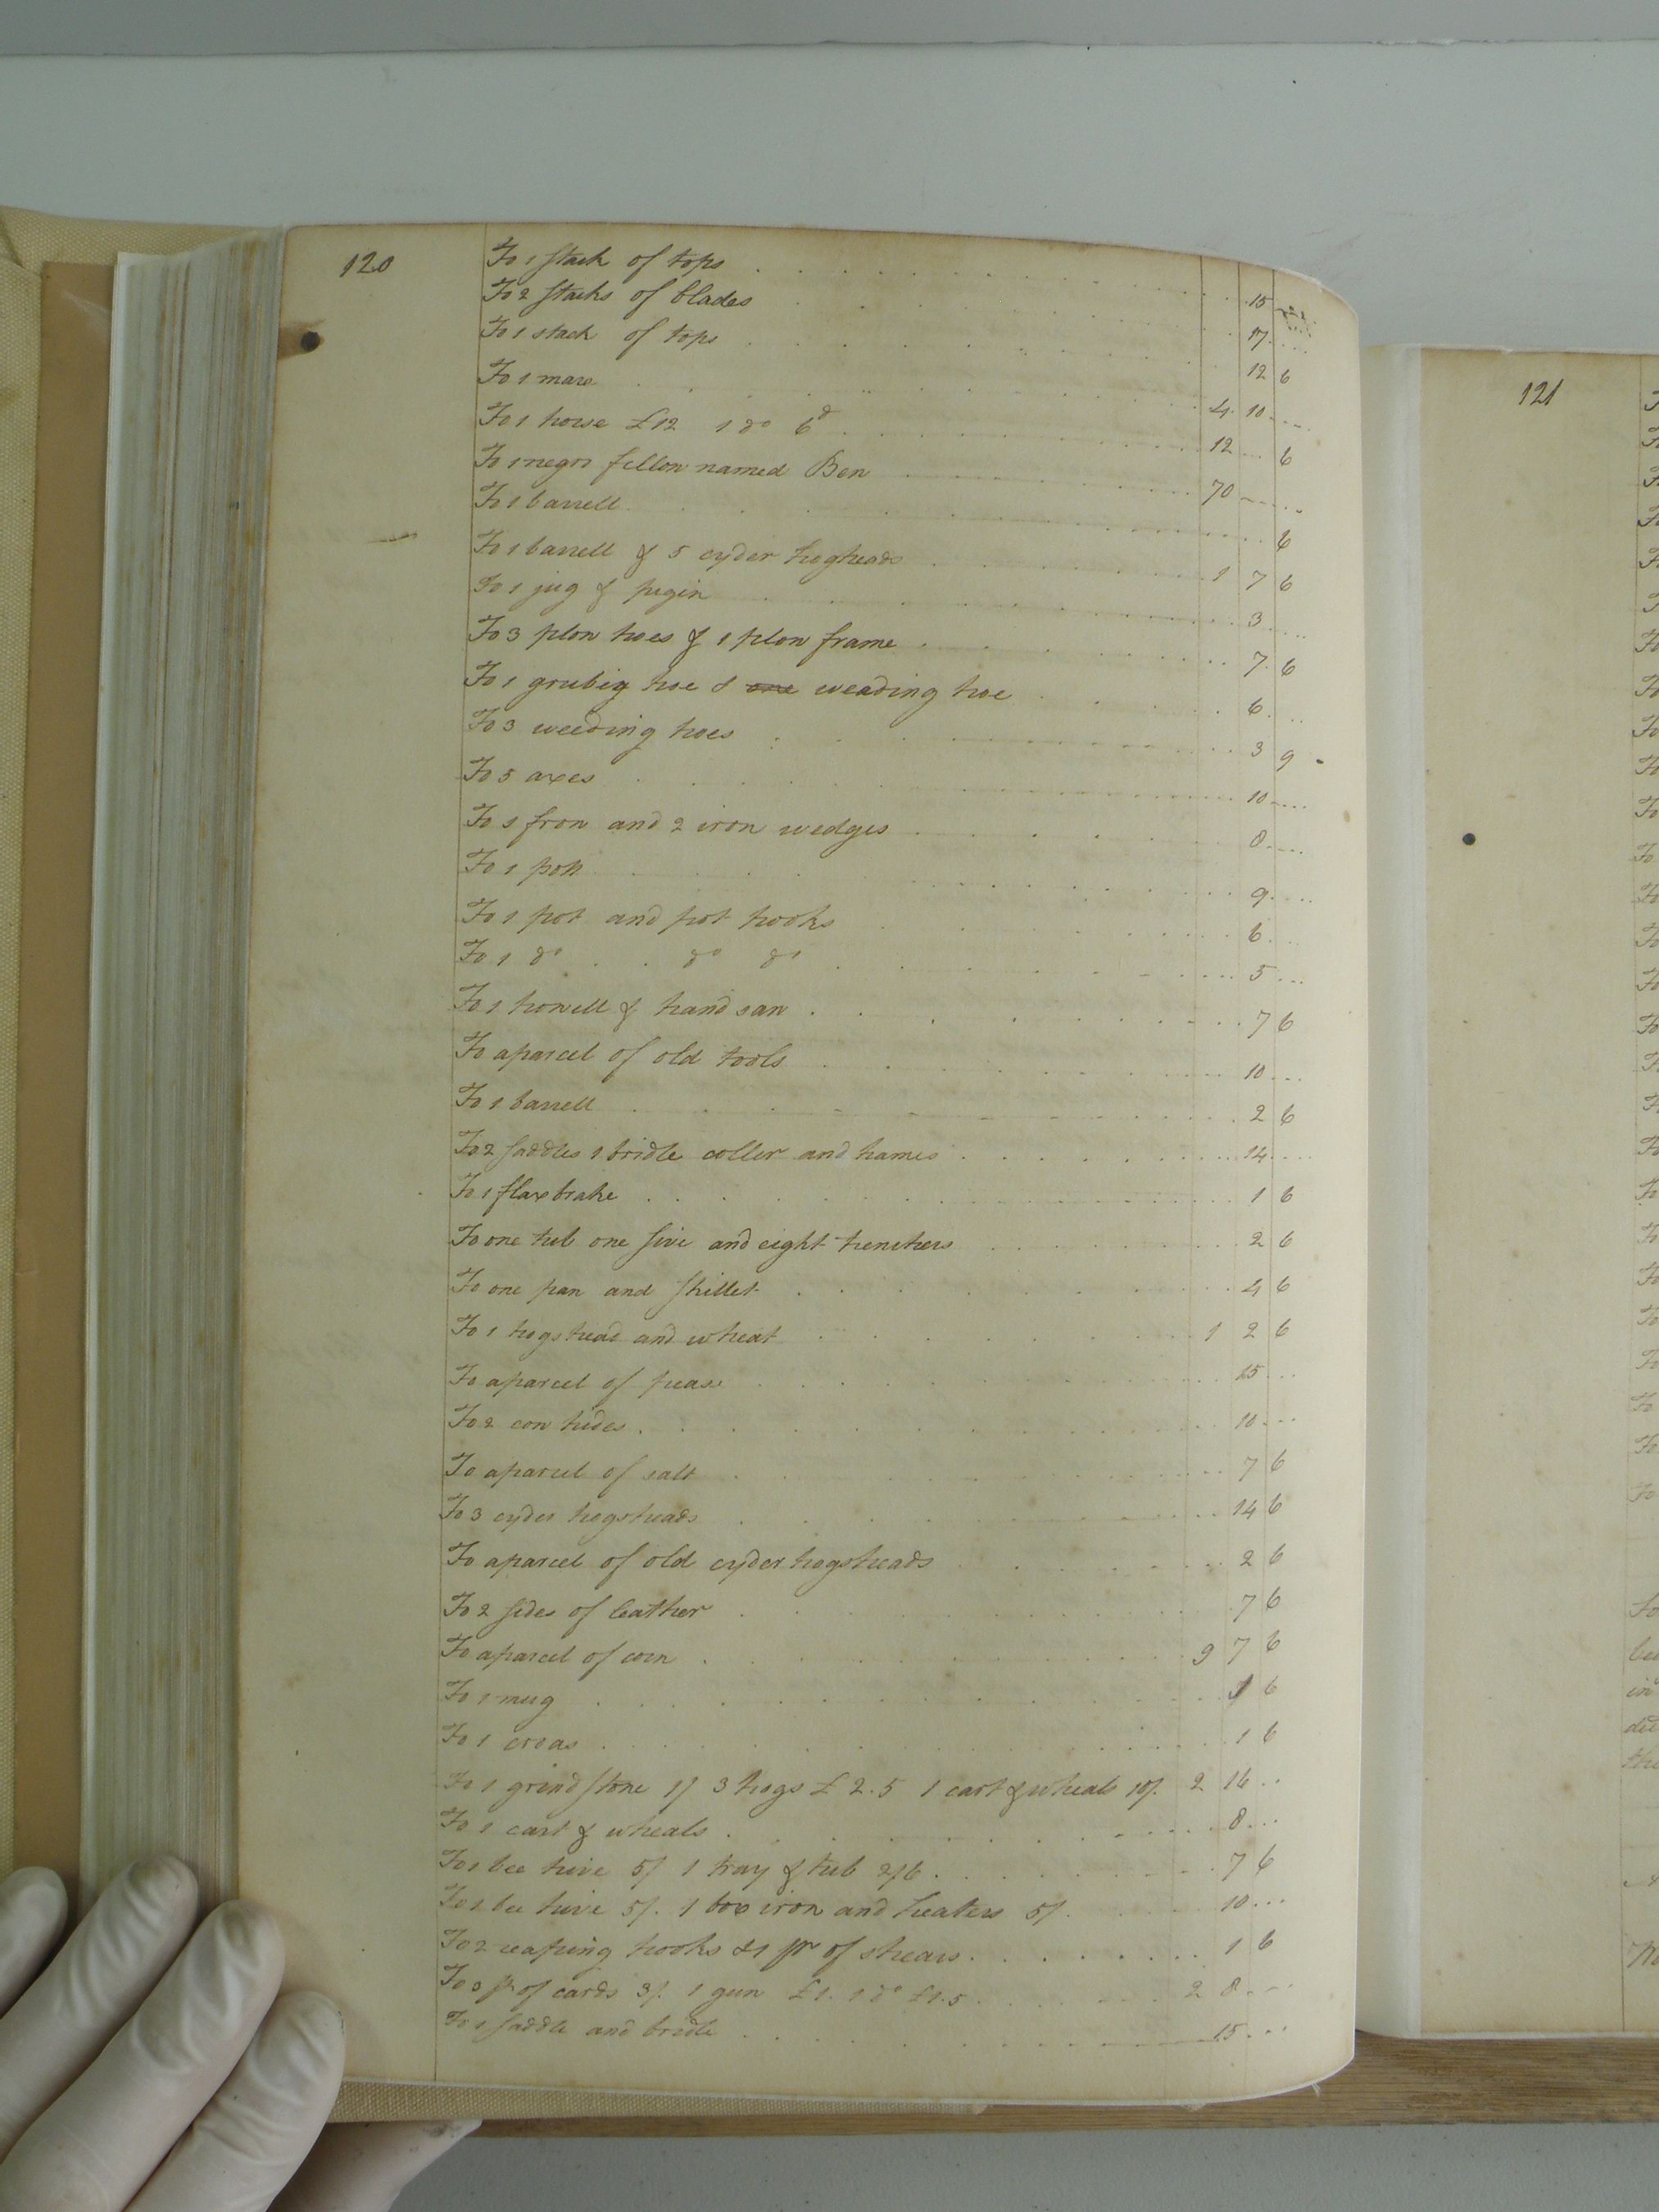 120
To 1 stack of tops 15
To 2 stacks of blades 17
To 1 stack of tops 12 6
To 1 mare 4 10
To 1 horse £12 1 do 6d 12 6
To 1 negro fellow named Ben 70
To 1 barrell 6
To 1 barrell & 5 cyder hogheads 1 7 6
To 1 jug & pigin 3
To 3 plow hoes & 1 plow frame 7 6
To 1 grubig hoe & one weading hoe 6
To 3 weeding hoes 3 9
To 5 axes 10
To 1 frow and 2 iron wedges 8
To 1 pott 9
To 1 pot and pot hooks 6
To 1 do do do 5
To 1 howell & hand saw 7 6
To aparcel of old tools 10
To 1 barrell 2 6
To 2 saddles 1 bridle coller and hames 14
To 1 flax brake 1 6
To one tub one sive and eight trenchers 2 6
To one pan and skillet 4 6
To 1 hogshead and wheat 1 2 6
To aparcel of pease 15
To 2 cow hides 10
To aparcel of salt 7 6
To 3 cyder hogsheads 14 6
To aparcel of old cyder hogsheads 2 6
To 2 sides of leather 7 6
To aparcel of corn 9 7 6
To 1 mug 1 6
To 1 6
To 1 grind stone 1/ 3 hogs £2.5 1 cart & wheals 10/. 2 16
To 1 cart & wheals 8
To 1 bee hive 5/ 1 tray & tub 2/6 7 6
To 1 bee hive 5/. 1 box iron and heaters 5/. 10
To 2 reaping hooks & 1 pr of shears 1 6
To 3 pr of cards 3/. 1 gun £1. 1 do £1.5 2 8
To 1 saddle and bridle 15
121